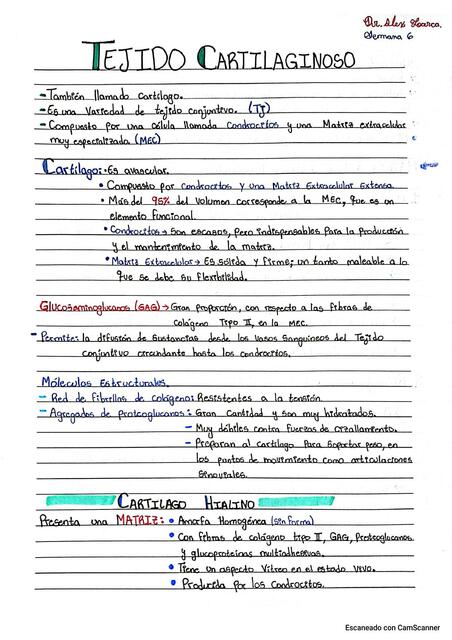 Dr. Alex Barca.
Semana 6
TEJIDO CARTILAGINOSO
- También llamado cartílago.
- Es una Variedad de tejido conjuntivo. (TJ)
- Compuesto por una célula llamada Condrocitos y una Matriz extracelular
muy especializada (MEC)
Cartílago: • Es avascular.
• Compuesto por Condrocitos y una Matriz Extracelular Extensa.
• Más del 95% del Volumen corresponde a la MEC, que es un
elemento funcional.
• Condrocitos → Son escasos, pero indispensables para la producción
y el mantenimiento de la matriz.
• Matriz Extracelular → Es sólida y firme; un tanto maleable a lo
que se debe su flexibilidad.
Glucosaminoglucanos (GAG) → Gran proporción, con respecto a las fibras de
colágeno Tipo II, en la MEC.
- Permite: la difusión de Sustancias desde los Vasos Sanguíneos del Tejido
Conjuntivo circundante hasta los condrocitos.
Móleculas Estructurales.
- Red de Fibrillas de colágeno: Resistentes a la tensión.
- Agregados de proteoglucanos: Gran Cantidad y son muy hidratados.
- Muy débiles contra fuerzas de cizallamiento.
- Preparan al cartílago Para Soportar peso, en
los puntos de movimiento como articulaciones
Sinoviales.
CARTILAGO HIALINO
Presenta una MATRIZ: • Amorfa Homogénea (sin forma)
• Con fibras de colágeno tipo II, GAG, Proteoglucanos
y glucoproteínas multiadhesivas.
• Tiene un aspecto Vítreo en el estado vivo.
• Producida por los Condrocitos.
Escaneado con CamScanner